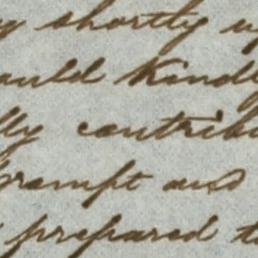 y shortly u
ould kindly
lly contribu
prompt and
prepared t